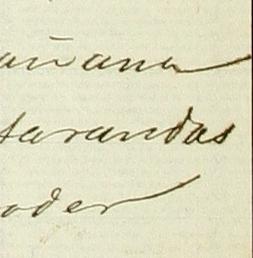 añana
tarandas
oder